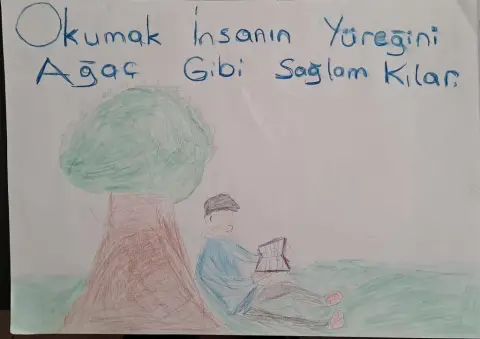 Okumak İnsanın Yüreğini
Ağaç Gibi Sağlam Kılar.